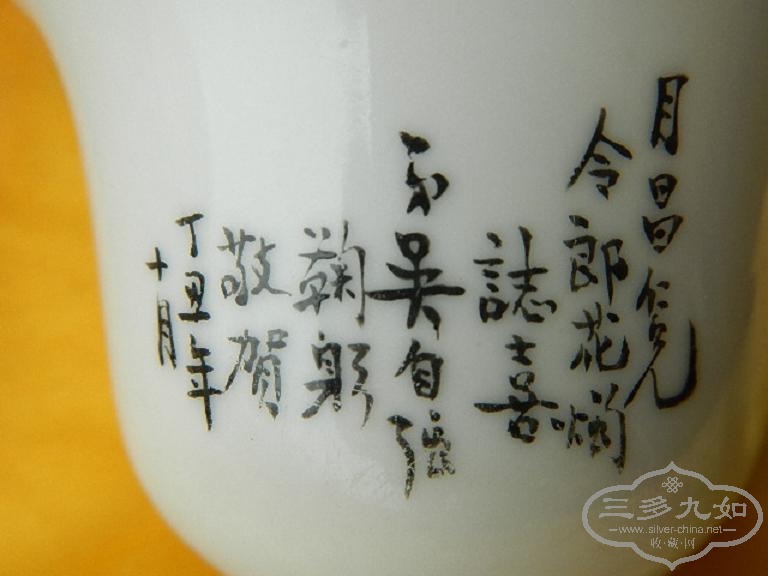 月昌仁兄
令郎花燭
誌喜
弟吴自强
鞠躬
敬賀
丁丑年
十月
三多九如
www.silver-china.net
收·藏·网